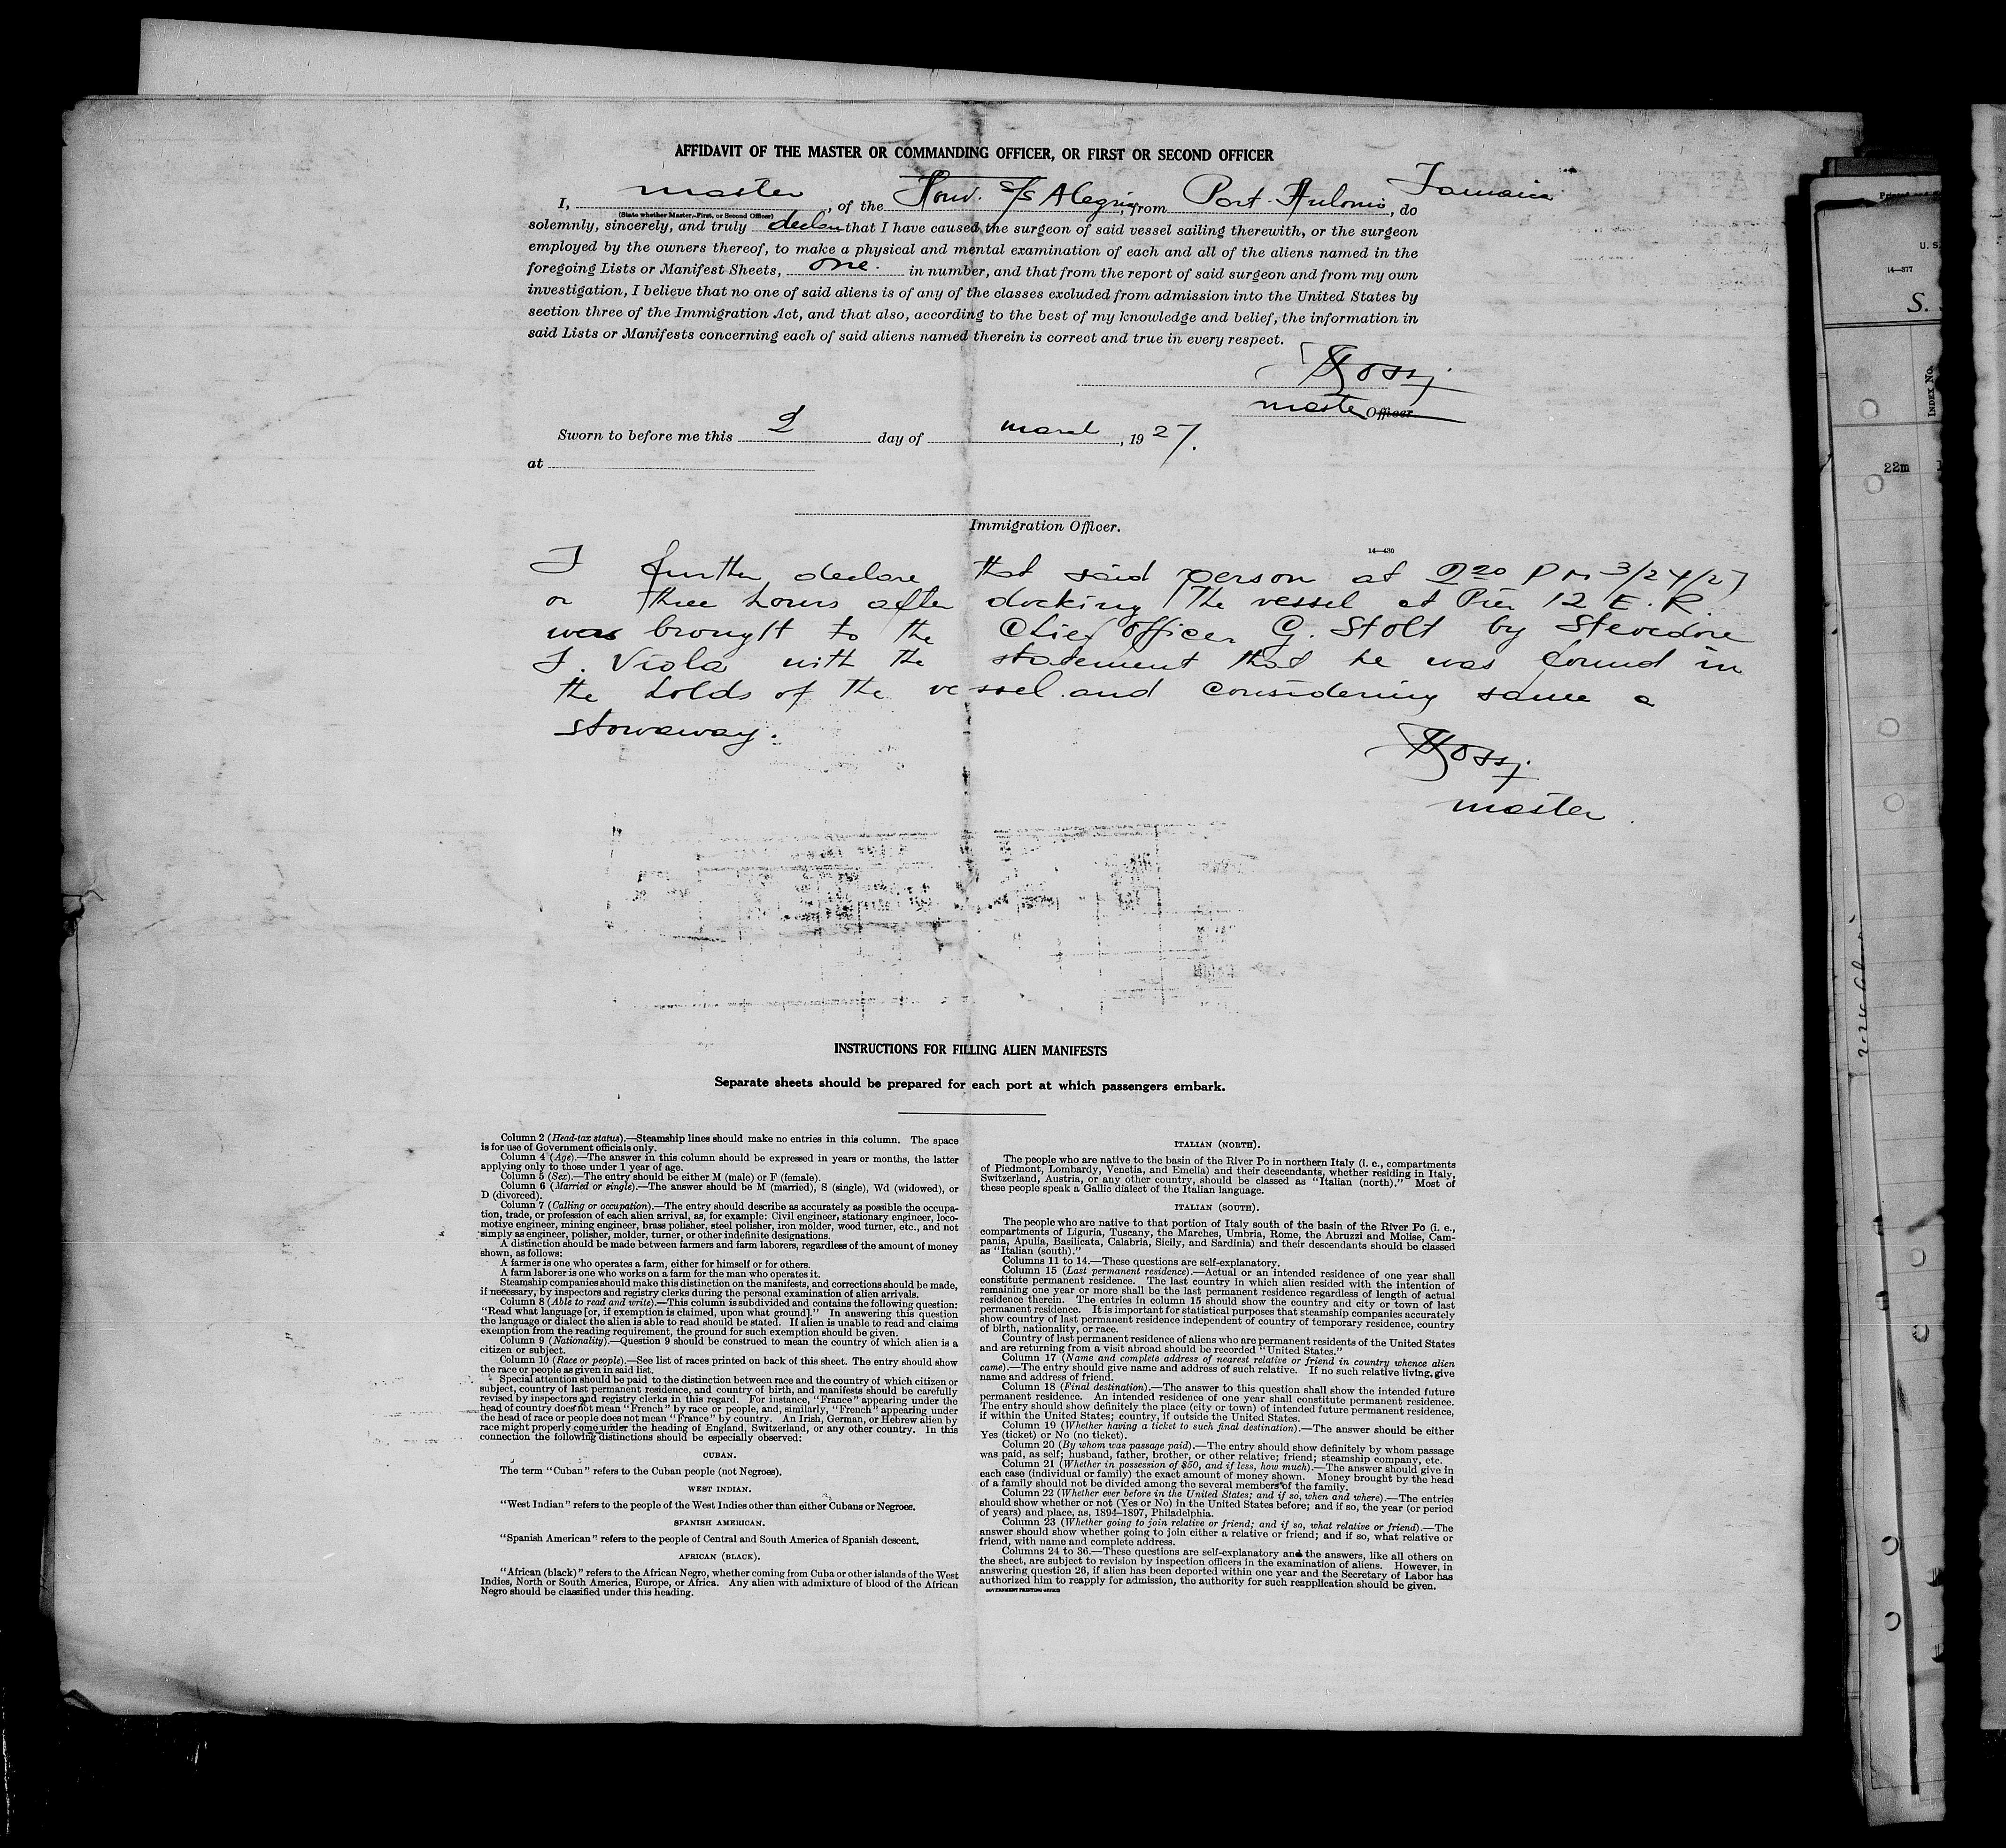 AFFIDAVIT OF THE MASTER OR COMMANDING OFFICER, OR FIRST OR SECOND OFFICER
I, master, of the Hond. S/S Alegria, from Port Antonio, do Jamaica
(State whether Master, First, or Second Officer)
solemnly, sincerely, and truly declare that I have caused the surgeon of said vessel sailing therewith, or the surgeon
employed by the owners thereof, to make a physical and mental examination of each and all of the aliens named in the
foregoing Lists or Manifest Sheets, one. in number, and that from the report of said surgeon and from my own
investigation, I believe that no one of said aliens is of any of the classes excluded from admission into the United States by
section three of the Immigration Act, and that also, according to the best of my knowledge and belief, the information in
said Lists or Manifests concerning each of said aliens named therein is correct and true in every respect.
master Officer
Sworn to before me this 2 day of March, 1927.
at
Immigration Officer.
14—430
I further declare that said person at PM 3/24/27
or three hours after docking the vessel at Pier 12 E. R.
was brought to the Chief Officer G. Stolt by Stevedore
J. Viola with the statement that he was found in
the holds of the vessel and considering same a
stowaway.
master
INSTRUCTIONS FOR FILLING ALIEN MANIFESTS
Separate sheets should be prepared for each port at which passengers embark.
Column 2 (Head-tax status).—Steamship lines should make no entries in this column. The space
is for use of Government officials only.
Column 4 (Age).—The answer in this column should be expressed in years or months, the latter
applying only to those under 1 year of age.
Column 5 (Sex).—The entry should be either M (male) or F (female).
Column 6 (Married or single).—The answer should be M (married), S (single), Wd (widowed), or
D (divorced).
Column 7 (Calling or occupation).—The entry should describe as accurately as possible the occupa-
tion, trade, or profession of each alien arrival, as, for example: Civil engineer, stationary engineer, loco-
motive engineer, mining engineer, brass polisher, steel polisher, iron molder, wood turner, etc., and not
simply as engineer, polisher, molder, turner, or other indefinite designations.
A distinction should be made between farmers and farm laborers, regardless of the amount of money
shown, as follows:
A farmer is one who operates a farm, either for himself or for others.
A farm laborer is one who works on a farm for the man who operates it.
Steamship companies should make this distinction on the manifests, and corrections should be made,
if necessary, by inspectors and registry clerks during the personal examination of alien arrivals.
Column 8 (Able to read and write).—This column is subdivided and contains the following question:
"Read what language [or, if exemption is claimed, upon what ground]." In answering this question
the language or dialect the alien is able to read should be stated. If alien is unable to read and claims
exemption from the reading requirement, the ground for such exemption should be given.
Column 9 (Nationality).—Question 9 should be construed to mean the country of which alien is a
citizen or subject.
Column 10 (Race or people).—See list of races printed on back of this sheet. The entry should show
the race or people as given in said list.
Special attention should be paid to the distinction between race and the country of which citizen or
subject, country of last permanent residence, and country of birth, and manifests should be carefully
revised by inspectors and registry clerks in this regard. For instance, "France" appearing under the
head of country does not mean "French" by race or people, and, similarly, "French" appearing under
the head of race or people does not mean "France" by country. An Irish, German, or Hebrew alien by
race might properly come under the heading of England, Switzerland, or any other country. In this
connection the following distinctions should be especially observed:
CUBAN.
The term "Cuban" refers to the Cuban people (not Negroes).
WEST INDIAN.
"West Indian" refers to the people of the West Indies other than either Cubans or Negroes.
SPANISH AMERICAN.
"Spanish American" refers to the people of Central and South America of Spanish descent.
AFRICAN (BLACK).
"African (black)" refers to the African Negro, whether coming from Cuba or other islands of the West
Indies, North or South America, Europe, or Africa. Any alien with admixture of blood of the African
Negro should be classified under this heading.
ITALIAN (NORTH).
The people who are native to the basin of the River Po in northern Italy (i. e., compartments
of Piedmont, Lombardy, Venetia, and Emelia) and their descendants, whether residing in Italy,
Switzerland, Austria, or any other country, should be classed as "Italian (north)." Most of
these people speak a Gallic dialect of the Italian language.
ITALIAN (SOUTH).
The people who are native to that portion of Italy south of the basin of the River Po (i. e.,
compartments of Liguria, Tuscany, the Marches, Umbria, Rome, the Abruzzi and Molise, Cam-
pania, Apulia, Basilicata, Calabria, Sicily, and Sardinia) and their descendants should be classed
as "Italian (south)."
Columns 11 to 14.—These questions are self-explanatory.
Column 15 (Last permanent residence).—Actual or an intended residence of one year shall
constitute permanent residence. The last country in which alien resided with the intention of
remaining one year or more shall be the last permanent residence regardless of length of actual
residence therein. The entries in column 15 should show the country and city or town of last
permanent residence. It is important for statistical purposes that steamship companies accurately
show country of last permanent residence independent of country of temporary residence, country
of birth, nationality, or race.
Country of last permanent residence of aliens who are permanent residents of the United States
and are returning from a visit abroad should be recorded "United States."
Column 17 (Name and complete address of nearest relative or friend in country whence alien
came).—The entry should give name and address of such relative. If no such relative living, give
name and address of friend.
Column 18 (Final destination).—The answer to this question shall show the intended future
permanent residence. An intended residence of one year shall constitute permanent residence.
The entry should show definitely the place (city or town) of intended future permanent residence,
if within the United States; country, if outside the United States.
Column 19 (Whether having a ticket to such final destination).—The answer should be either
Yes (ticket) or No (no ticket).
Column 20 (By whom was passage paid).—The entry should show definitely by whom passage
was paid, as self; husband, father, brother, or other relative; friend; steamship company, etc.
Column 21 (Whether in possession of $50, and if less, how much).—The answer should give in
each case (individual or family) the exact amount of money shown. Money brought by the head
of a family should not be divided among the several members of the family.
Column 22 (Whether ever before in the United States; and if so, when and where).—The entries
should show whether or not (Yes or No) in the United States before; and if so, the year (or period
of years) and place, as, 1894–1897, Philadelphia.
Column 23 (Whether going to join relative or friend; and if so, what relative or friend).—The
answer should show whether going to join either a relative or friend; and if so, what relative or
friend, with name and complete address.
Columns 24 to 36.—These questions are self-explanatory and the answers, like all others on
the sheet, are subject to revision by inspection officers in the examination of aliens. However, in
answering question 26, if alien has been deported within one year and the Secretary of Labor has
authorized him to reapply for admission, the authority for such reapplication should be given.
GOVERNMENT PRINTING OFFICE
U. S.
14—377
S.
INDEX No.
22m